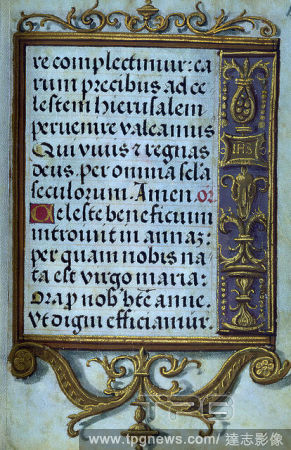 re complectimur: ea
rum precibus ad ce
lestem hierusalem
peruenire valeamus
Qui viuis ⁊ regnas
deus. per omnia secla
seculorum. Amen. or
Celeste beneficium
introiuit in annaz:
per quam nobis na
ta est virgo maria:
Ora p nob btē anne.
Vt digni efficiamur.
IHS
TPG
www.tpgnews.com/ 達志影像